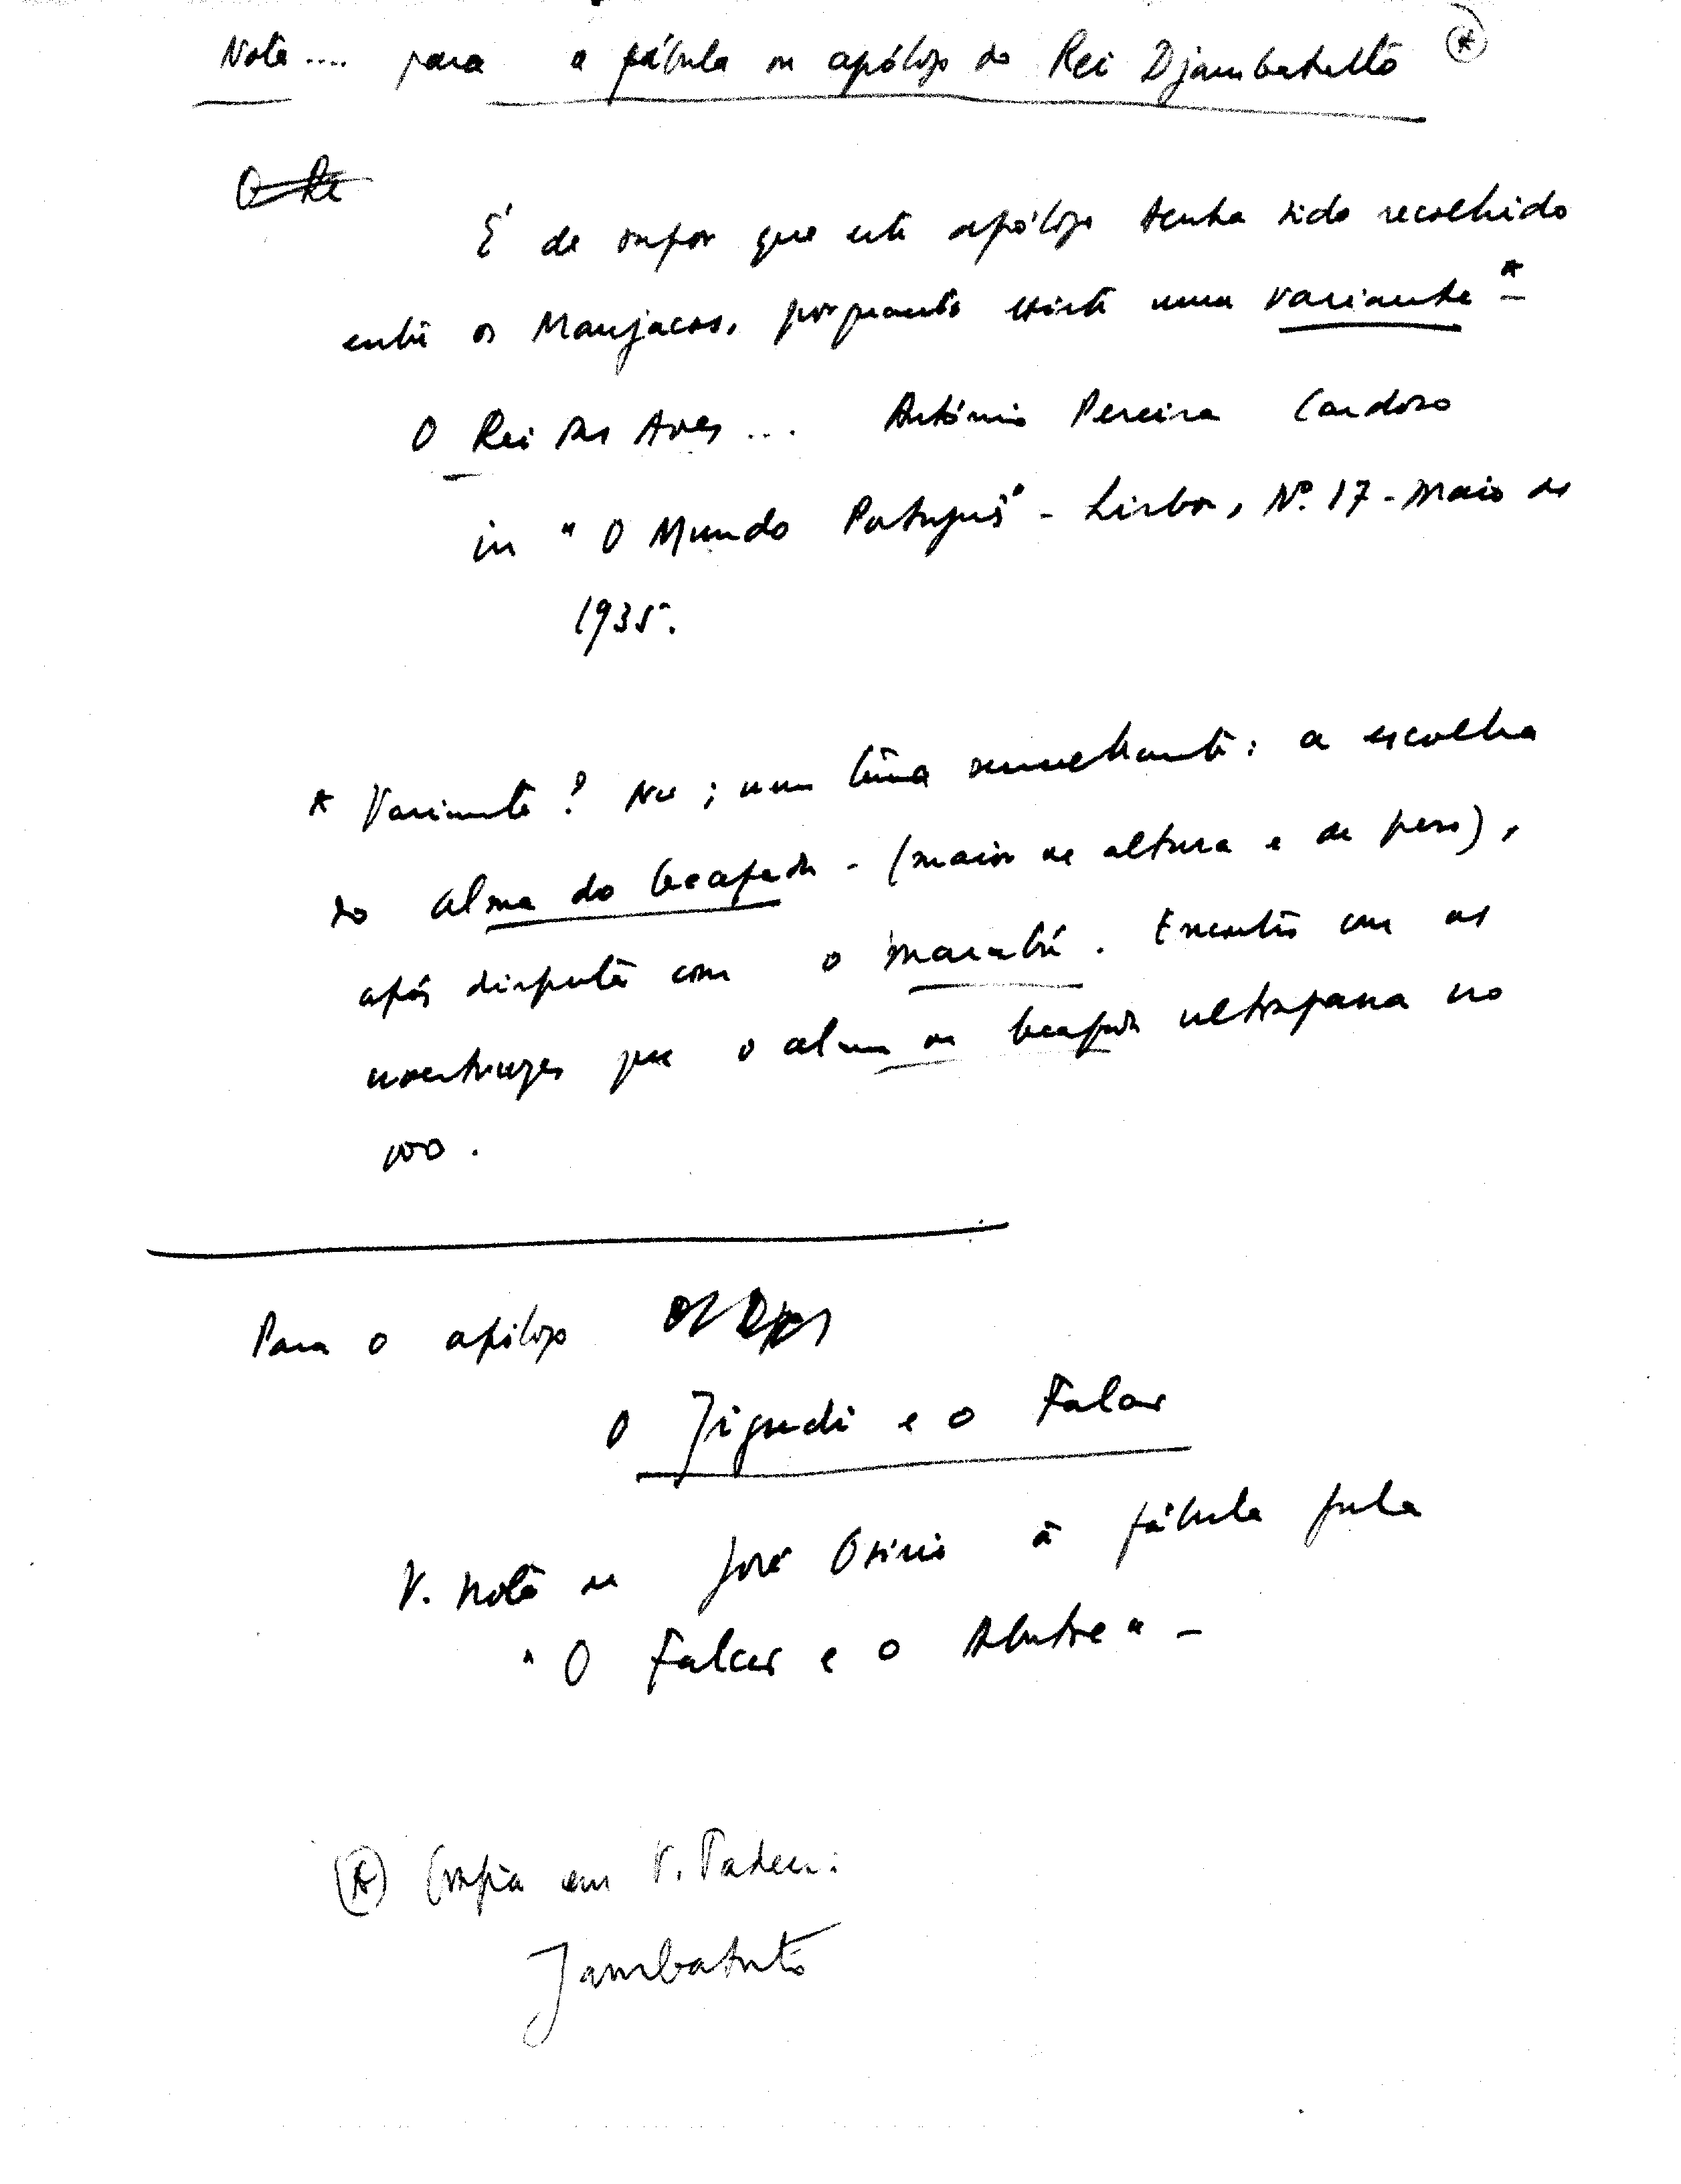 Nota .... para a fábula ou apólogo do Rei Djambatutto (*)
O Re
É de supor que este apólogo tenha sido recolhido
entre os Manjacos, porquanto existe uma variante * -
O Rei das Aves ... António Pereira Cardoso
in "O Mundo Português" - Lisboa, Nº. 17 - Maio de
1935.
* Variante? Não; um tema semelhante: a escolha
do alma do beafada - (maior de altura e de peso),
após disputa com o marabú. Encontro com as
avestruzes que o alma de beafada ultrapassa no
voo.
Para o apólogo
O Jigudi e o Falcão
V. nota de José Osório à fábula fula
"O Falcão e o Abutre" -
(*) Grafia em V. Tadeu:
Jambatuto